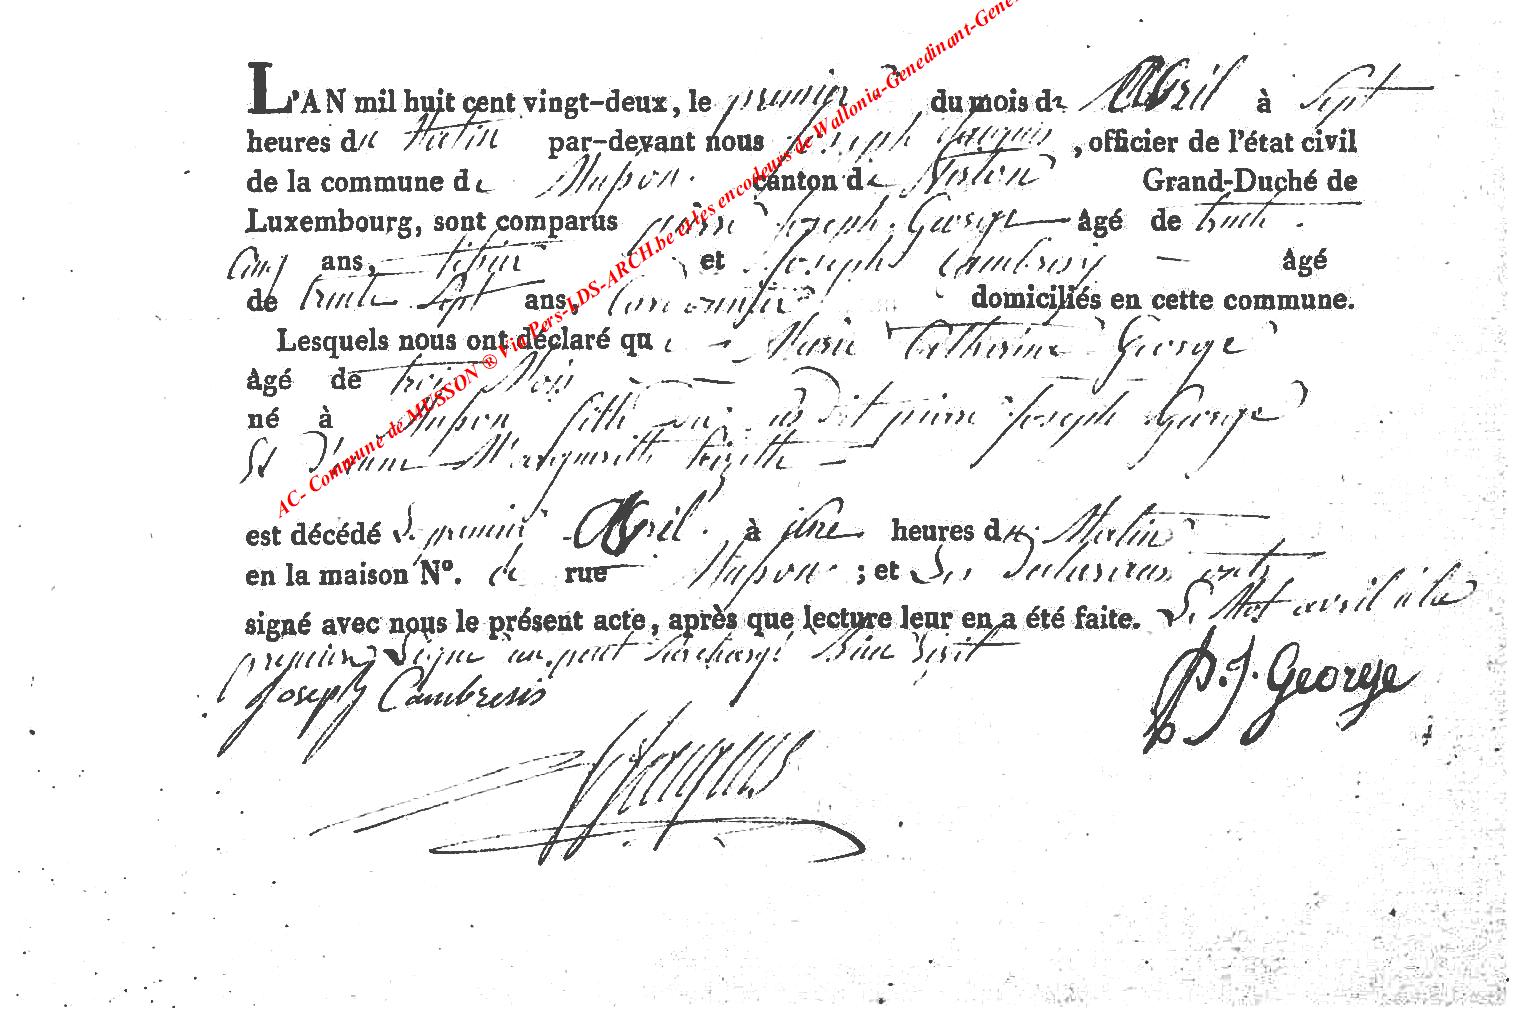 L'AN mil huit cent vingt-deux, le premier du mois de Avril à Sept
heures du Matin par-devant nous Joseph Jacques, officier de l'état civil
de la commune de Musson. canton de Virton Grand-Duché de
Luxembourg, sont comparus pierre Joseph George âgé de trente.
Cinq ans, et Joseph Cambresy âgé
de trente Sept ans, Cordonnier domiciliés en cette commune.
Lesquels nous ont déclaré que Marie Catherine George
âgé de trois Mois
né à Musson fille dudit pierre Joseph George
Et D'anne Marguerite
est décédé Le premier Avril à une heures du Matin
en la maison Nº. de rue Musson ; et Les Déclarans ont
signé avec nous le présent acte, après que lecture leur en a été faite. Le Mot avril à la
premiere Ligne un peut Surchargé
Joseph Cambresis
P. J. George
Jacques
AC- Commune de MUSSON ® Via Pers-LDS-ARCH.be et les encodeurs de Wallonia-Genedinant-Gene